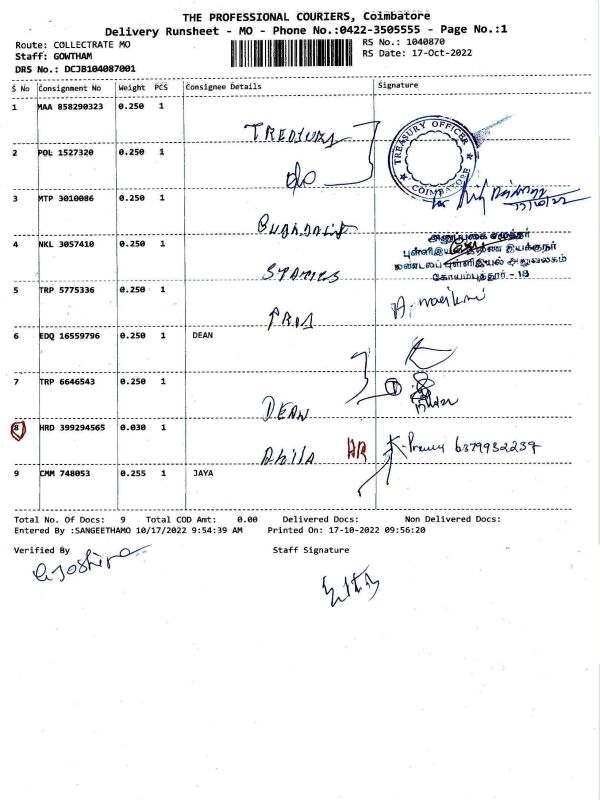 THE PROFESSIONAL COURIERS, Coimbatore
Delivery Runsheet - MO - Phone No.:0422-3505555 - Page No.:1
Route: COLLECTRATE MO
RS No.: 1040870
Staff: GOWTHAM
RS Date: 17-Oct-2022
DRS No.: DCJB104087001
S No Consignment No Weight PCS Consignee Details Signature
1 MAA 858290323 0.250 1
TREASURY
TREASURY OFFICER
COIMBATORE
2 POL 1527320 0.250 1
17/10/22
3 MTP 3010086 0.250 1
4 NKL 3057410 0.250 1
அலுவலகம்
கோயம்புத்தூர் - 18
5 TRP 5775336 0.250 1
6 EDQ 16559796 0.250 1 DEAN
7 TRP 6646543 0.250 1
DEAN
8 HRD 399294565 0.030 1
Akila HR 6379932237
9 CMM 748053 0.255 1 JAYA
Total No. Of Docs: 9 Total COD Amt: 0.00 Delivered Docs: Non Delivered Docs:
Entered By :SANGEETHAMO 10/17/2022 9:54:39 AM Printed On: 17-10-2022 09:56:20
Verified By Staff Signature